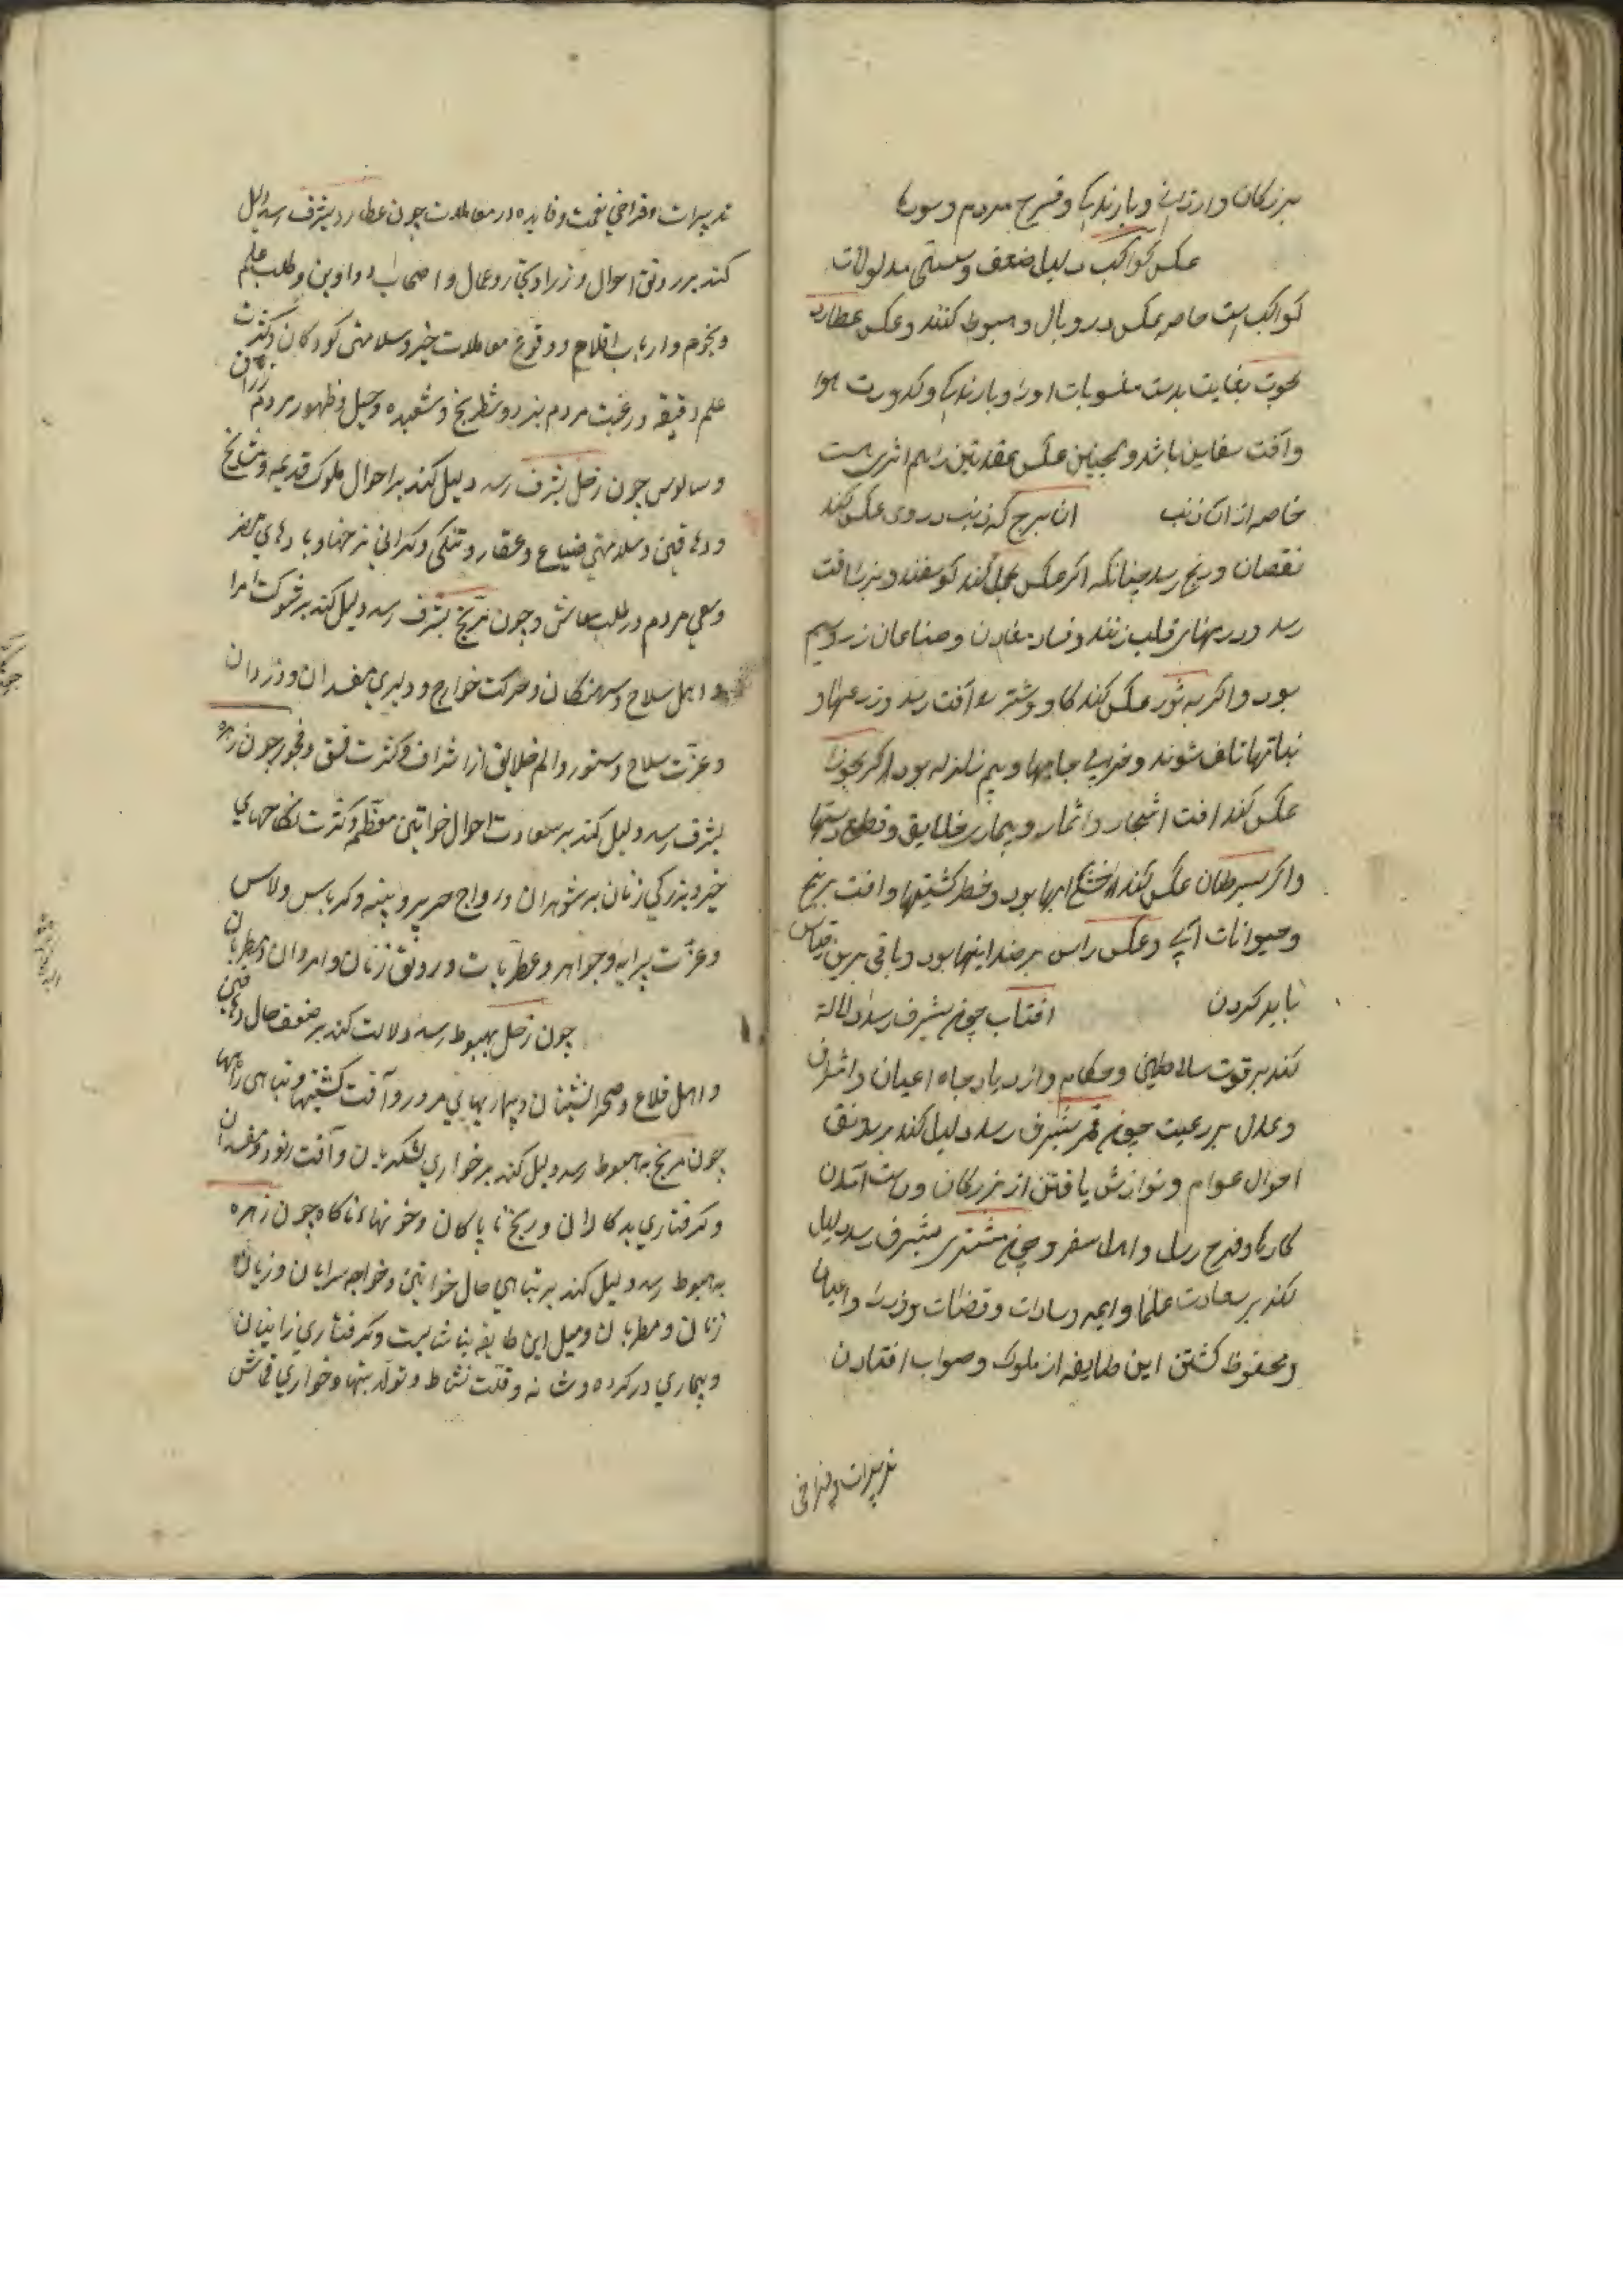 بزرکان وارزانی و بارندکی و فرح مردم و سورها
عکس کواکب دلیل ضعف و سستی مدلولات
کواکب است خاصه عکس در وبال و هبوط کنند و عکس عطارد
بحوت بغایت بدست منسوبات او را و بارندکی و کدورت هوا
وآفت سفاین باشد و همچنین عکس عقدتین را هم اثری هست
خاصه از ان ذنب ان برج که ذنب در وی عکس کند
نقصان و رنج رسد چنانکه اکر عکس بحمل کند کوسفند و بز را افت
رسد و درمهای قلب زنند و فساد معادن و صناعان زر و سیم
بود و اکر به ثور عکس کند کاو و شتر را آفت رسد و زرعها و
نباتها تلف شوند و خرابی جایها و بیم زلزله بود اکر بجوزا
عکس کند افت اشجار و اثمار و بیماری خلایق و قطع دستها
واکر بسرطان عکس کند خشکی ابها بود و خطر کشتیها و افت برنج
وحیوانات آبی و عکس راس بر ضد اینها بود و باقی برین قیاس
باید کردن افتاب چون بشرف رسد دلالة
کند بر قوت سلاطین و حکام و ازدیاد جاه اعیان و اشراف
وعدل بر رعیت چون قمر بشرف رسد دلیل کند بر رونق
احوال عوام و نوازش یافتن از بزرکان و راست آمدن
کارها و فرح رسل و اهل سفر و چون مشتری بشرف رسد دلیل
کند بر سعادت علما و ایمه و سادات و قضات و وزرا و اعیان
ومحفوظ کشتن این طایفه از ملوک و صواب افتادن
تدبیرات و فراخی
تدبیرات و فراخی نعمت و فایده در معاملات چون عطارد بشرف رسد دلیل
کند بر رونق احوال وزرا و تجار و عمال و اصحاب دواوین و طلب علم
ونجوم وارباب اقلام و وقوع معاملات خیر و سلامتی کودکان و کثرت
علم دقیقه و رغبت مردم بنرد و شطرنج و شعبده و حیل و ظهور مردم زراق
وسالوس چون زحل بشرف رسد دلیل کند بر احوال ملوک قدیمه و مشایخ
ودهاقین و سلامتی ضیاع و عقار و تنکی و کرانی نرخها و بادهای مضر
وسعی مردم در طلب معاش و چون مریخ بشرف رسد دلیل کند بر شوکت امرا
واهل سلاح و سرهنکان و حرکت خوارج و دلیری مفسدان و دزدان
وعزت سلاح و ستور و الم خلایق از اشراف و کثرت فسق و فجور چون زهره
بشرف رسد دلیل کند بر سعادت احوال خواتین معظم و کثرت نکاحهای
خیر و بزرکی زنان بر شوهران و رواج حریر و پنبه و کرباس و لاس
وعزت پیرایه و جواهر و عطریات و رونق زنان و امردان و مطربان
چون زحل بهبوط رسد دلالت کند بر ضعف حال دهاقین
واهل قلاع و صحرانشینان و بیماریهای مرور و آفت کشتیها و تباهی راهها
چون مریخ به هبوط رسد دلیل کند بر خواری لشکریان و آفت ستور و مفسدان
وکرفتاری بدکاران و رنج ناپاکان و خونهاء ناکاه چون زهره
به هبوط رسد دلیل کند بر تباهی حال خواتین و خواجه سرایان و زیان
زنان و مطربان و میل این طایفه بناشایست و کرفتاری زانیان
وبیماری در کرده و شانه و قلت نشاط و تولد تبها و خواری قماش